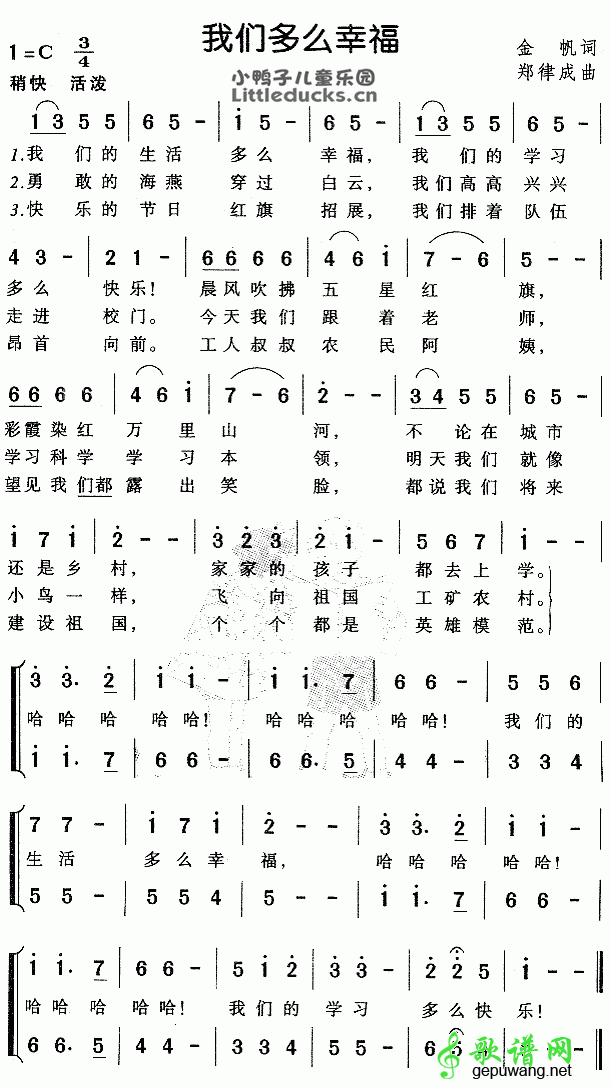 我们多么幸福
1=C 3/4
金 帆词
稍快 活泼
郑律成曲
小鸭子儿童乐园
Littleducks.cn
1 3 5 5 | 6 5 - | i 5 - | 6 5 - | 1 3 5 5 | 6 5 - |
1.我 们的 生活 多么 幸福, 我 们的 学习
2.勇 敢的 海燕 穿过 白云, 我们高高 兴兴
3.快 乐的 节日 红旗 招展, 我们排着 队伍
4 3 - | 2 1 - | 6 6 6 6 | 4 6 i | 7 - 6 | 5 - - |
多么 快乐! 晨风吹拂 五星红 旗,
走进 校门。 今天我们 跟着老 师,
昂首 向前。 工人叔叔 农民阿 姨,
6 6 6 6 | 4 6 i | 7 - 6 | 2 - - | 3 4 5 5 | 6 5 - |
彩霞染红 万里山 河, 不论在 城市
学习科学 学习本 领, 明天我们 就像
望见我们都 露出笑 脸, 都说我们 将来
i 7 i | 2 - - | 3 2 3 | 2 i - | 5 6 7 | i - - |
还是乡 村, 家家的 孩子 都去上 学。
小鸟一 样, 飞向祖国 工矿农 村。
建设祖 国, 个个都是 英雄模 范。
3 3. 2 | i i - | i i. 7 | 6 6 - | 5 5 6 |
哈哈 哈 哈哈! 哈哈 哈 哈哈! 我们的
i i. 7 | 6 6 - | 6 6. 5 | 4 4 - | 3 3 4 |
7 7 - | i 7 i | 2 - - | 3 3. 2 | i i - |
生活 多么幸 福, 哈哈 哈 哈哈!
5 5 - | 5 5 4 | 5 - - | i i. 7 | 6 6 - |
i i. 7 | 6 6 - | 5 i 2 | 3 3 - | 2 2 5 | i
哈哈 哈 哈哈! 我们的 学习 多么快乐!
6 6. 5 | 4 4 - | 3 3 4 | 5 5 -
歌谱网
gepuwang.net